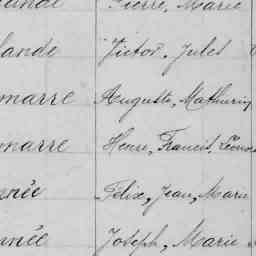 Pierre, Marie
lande Victor, Jules
marre Auguste, Mathurin
marre Henri, Francis, Léonor
née Félix, Jean, Marie
née Joseph, Marie